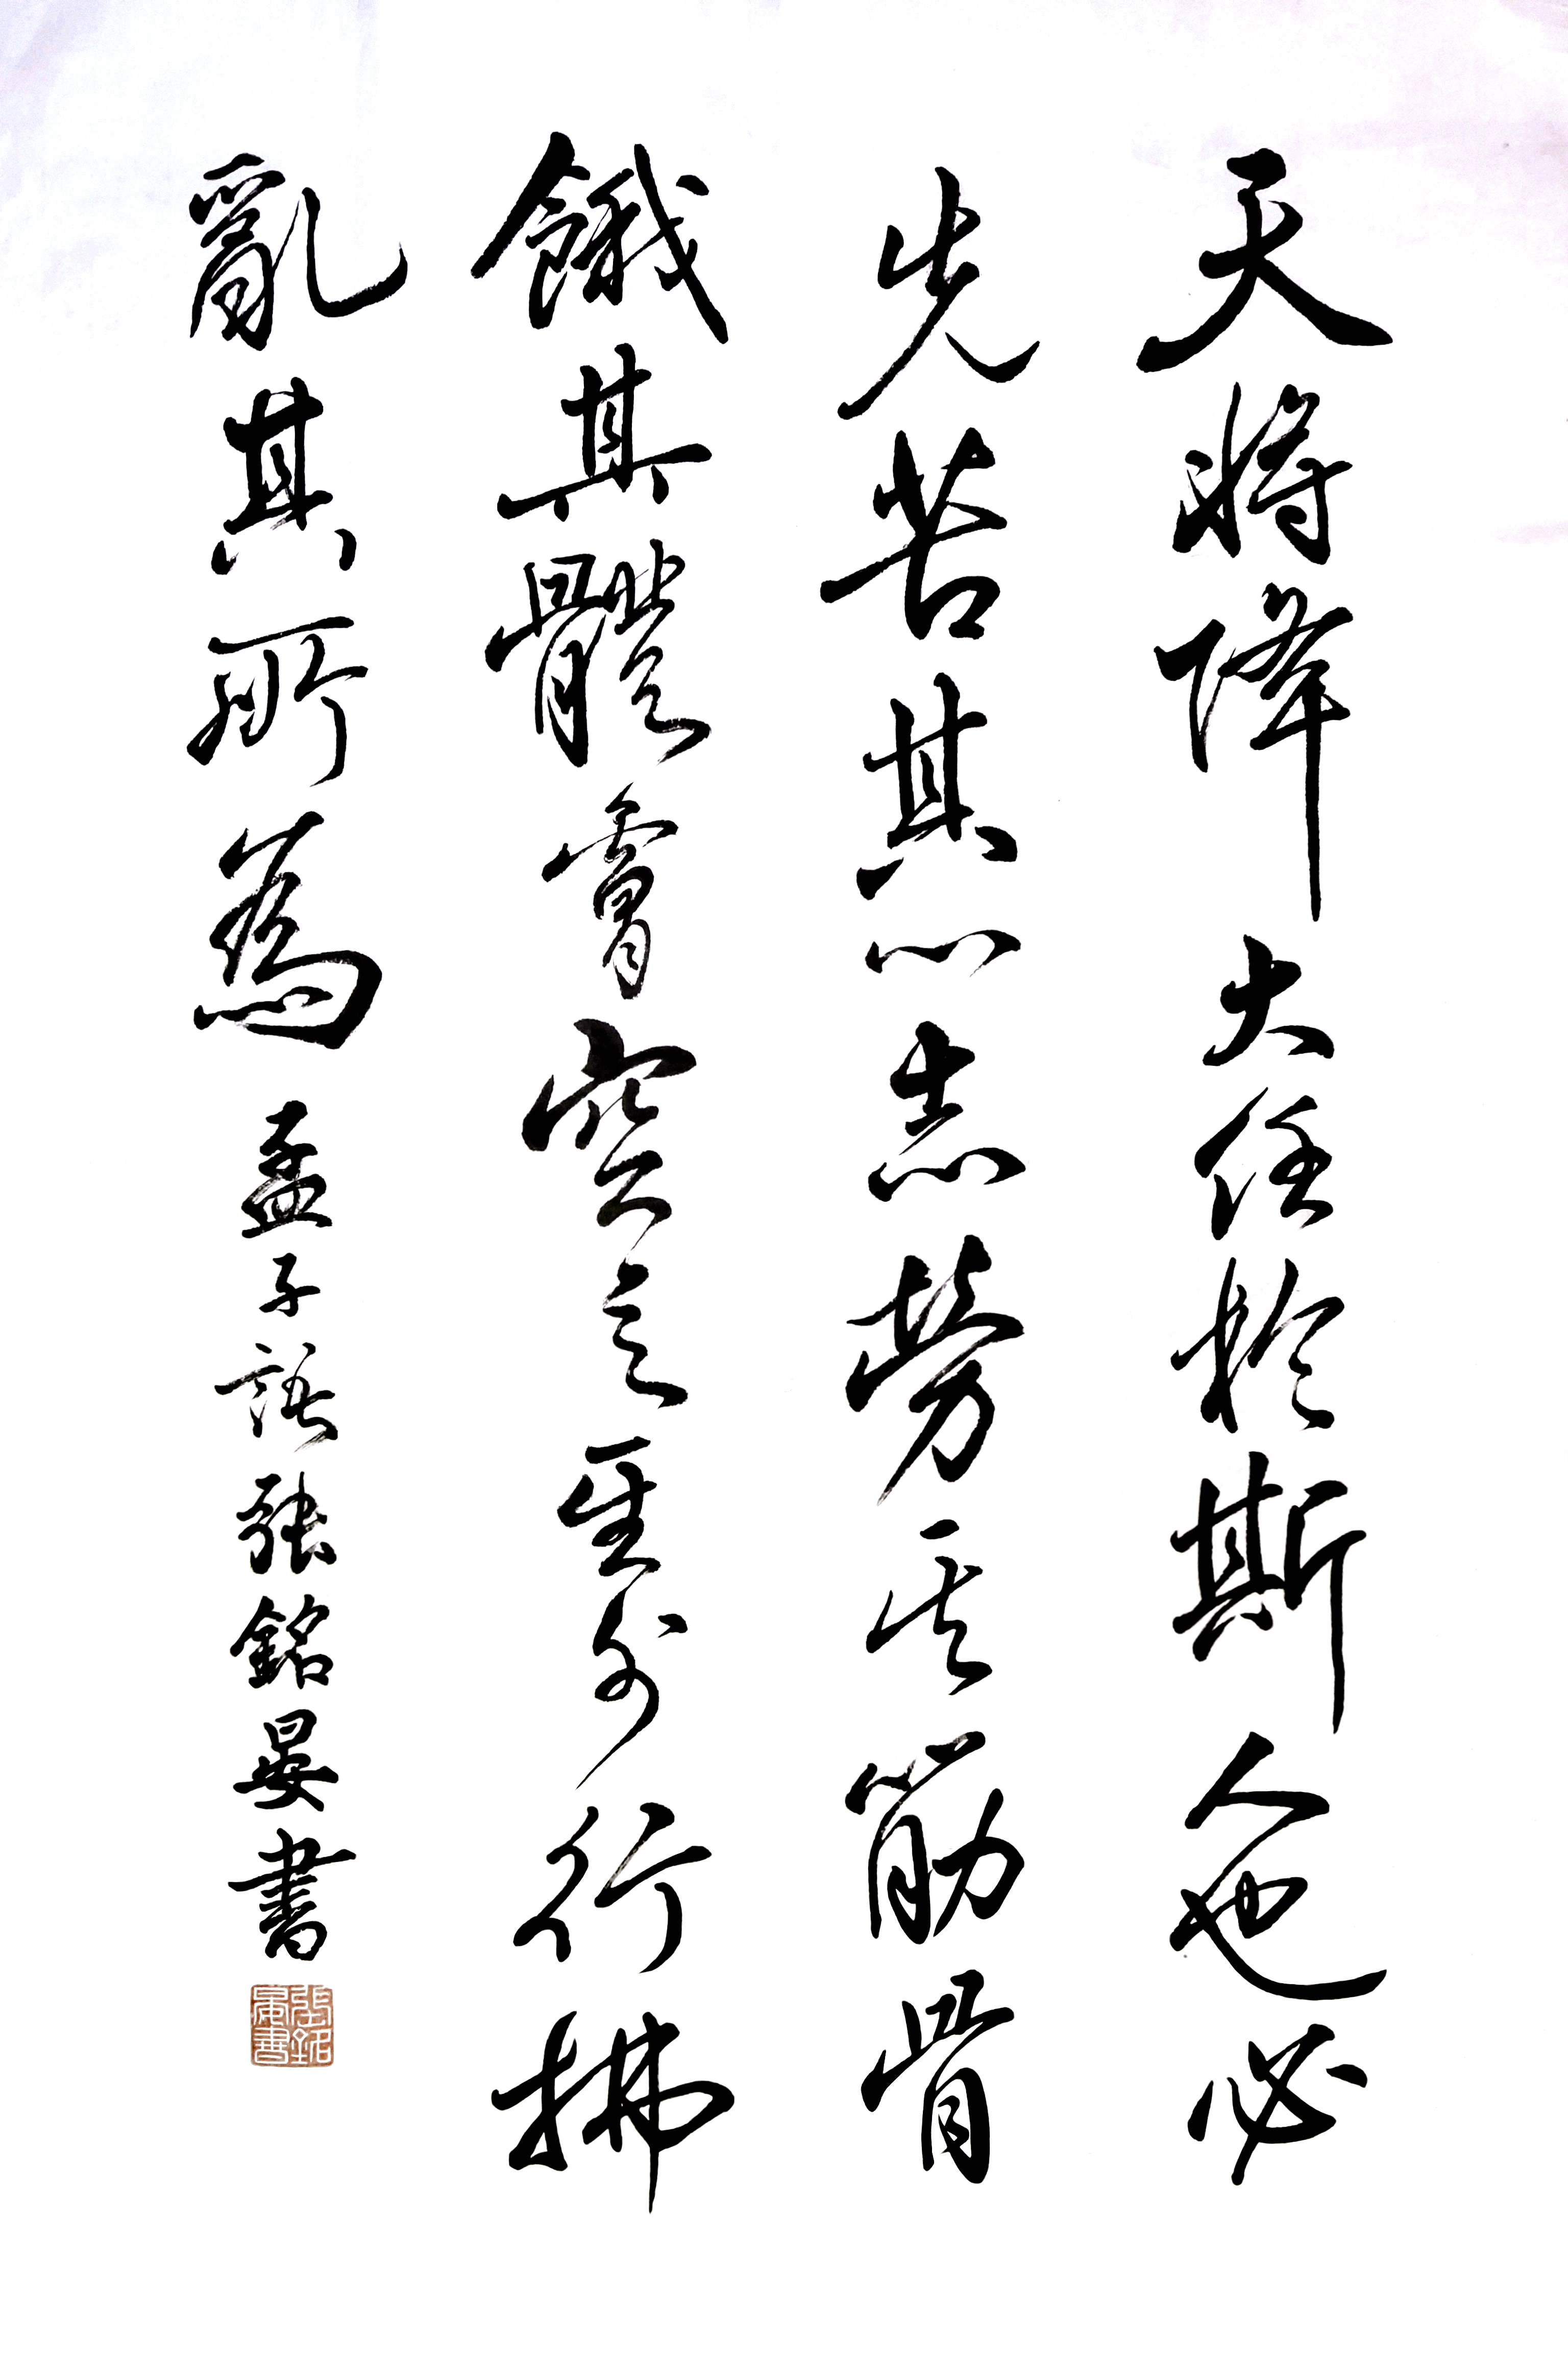 天將降大任於斯人也必
先苦其心志勞其筋骨
餓其體膚空乏其身行拂
亂其所為 孟子語張銘晏書
張銘晏書